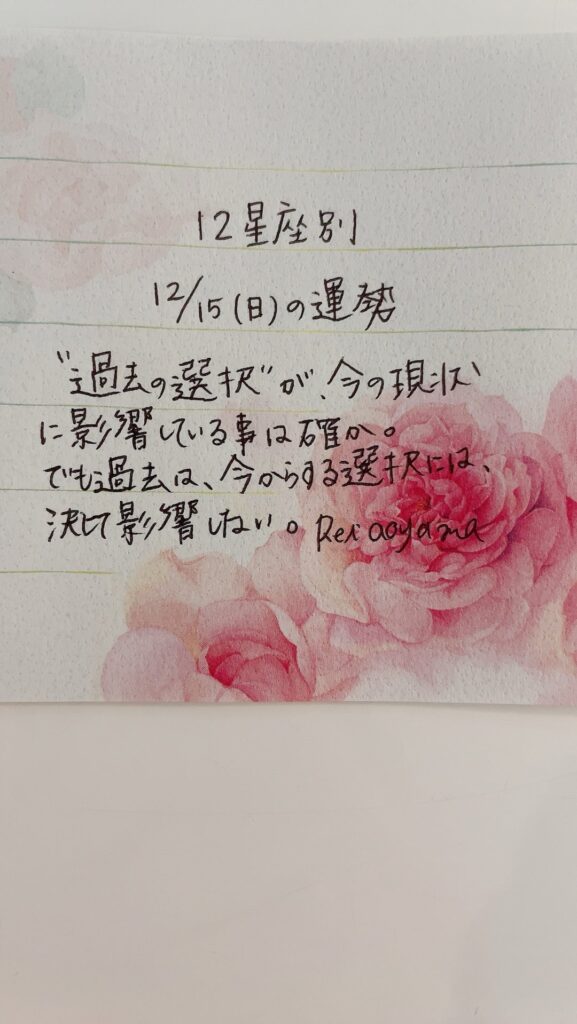 12星座別
12/15(日)の運勢
"過去の選択"が、今の現状
に影響している事は確か。
でも過去は、今からする選択には、
決して影響しない。Rei aoyama